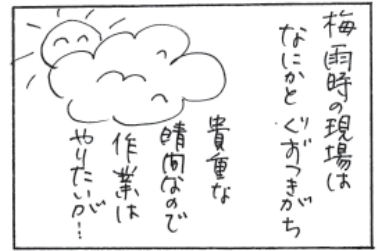 梅雨時の現場は
なにかとぐずつきがち
貴重な
晴間なので
作業は
やりたいが…